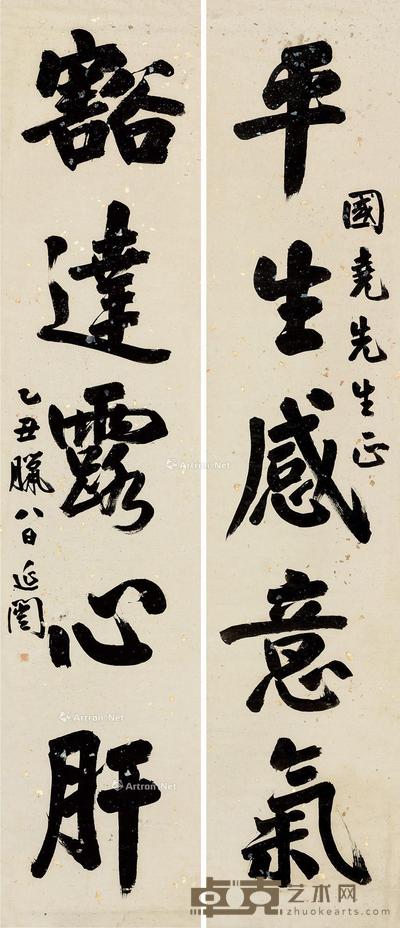 平生感意氣
國堯先生正
豁達露心肝
乙丑臘八日 延闓
Artron.Net
Artron.Net
Artron.Net
卓克艺术网
zhuokearts.com